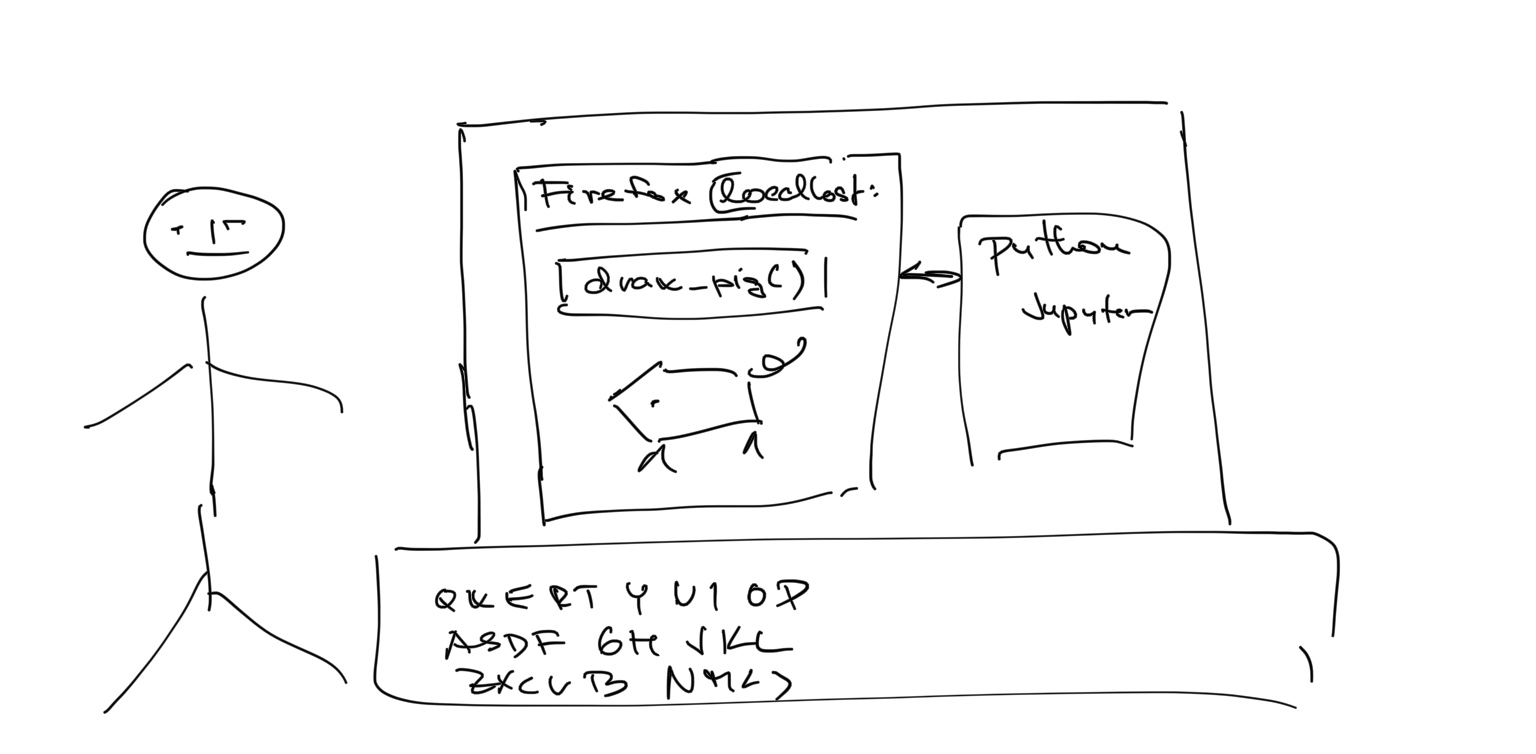 Firefox localhost:
draw_pig()
python
Jupyter
QWERTYUIOP
ASDF GH JKL
ZXCVB NM<>